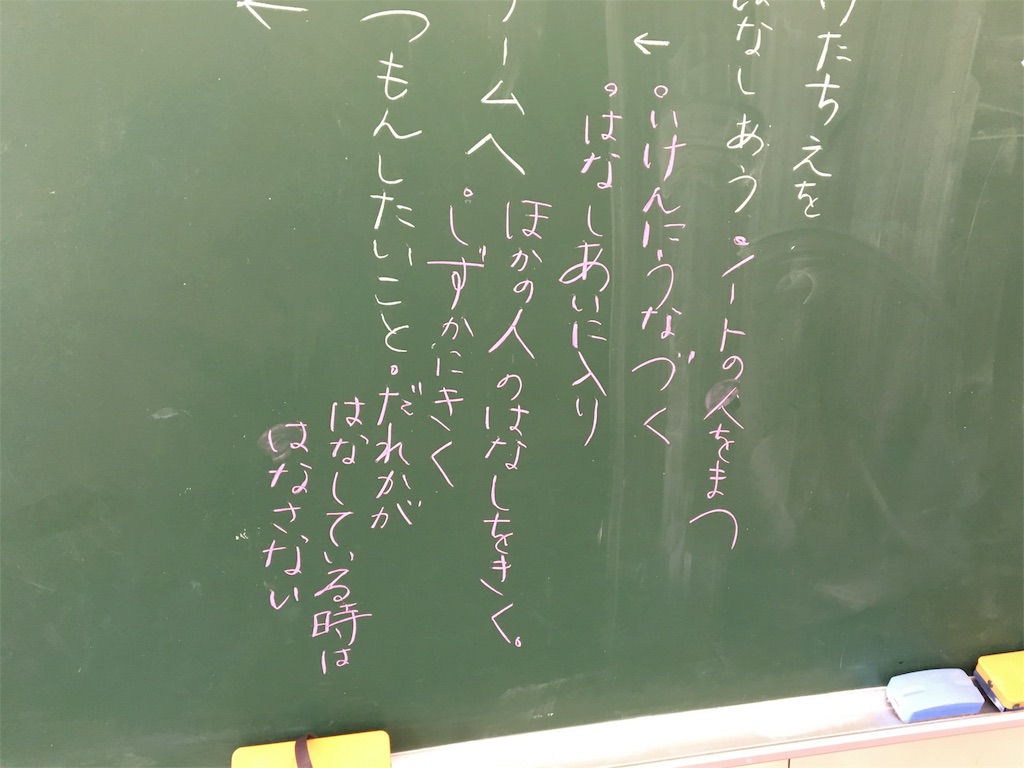 たちえを
なしあう
・ノートの人をまつ
←
・いけんにうなづく
・はなしあいに入り
ームへ
ほかの人のはなしをきく。
・しずかにきく
つもんしたいこと
・だれかが
はなしている時は
はなさない
←